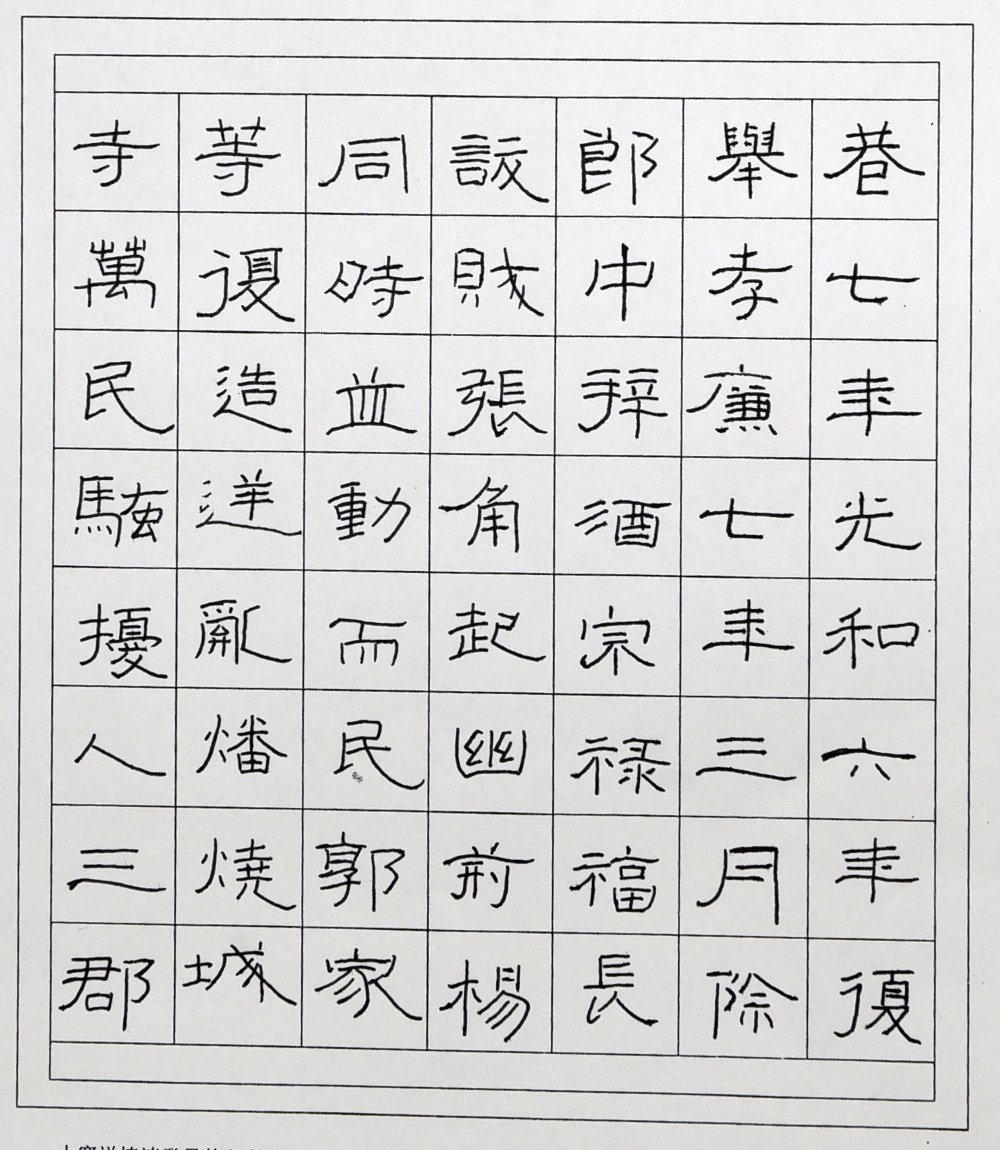 巷七年光和六年復
舉孝廉七年三月除
郎中拜酒宗祿福長
訞賊張角起幽荊楊
同時並動而民郭家
等復造逆亂燔燒城
寺萬民騷擾人三郡